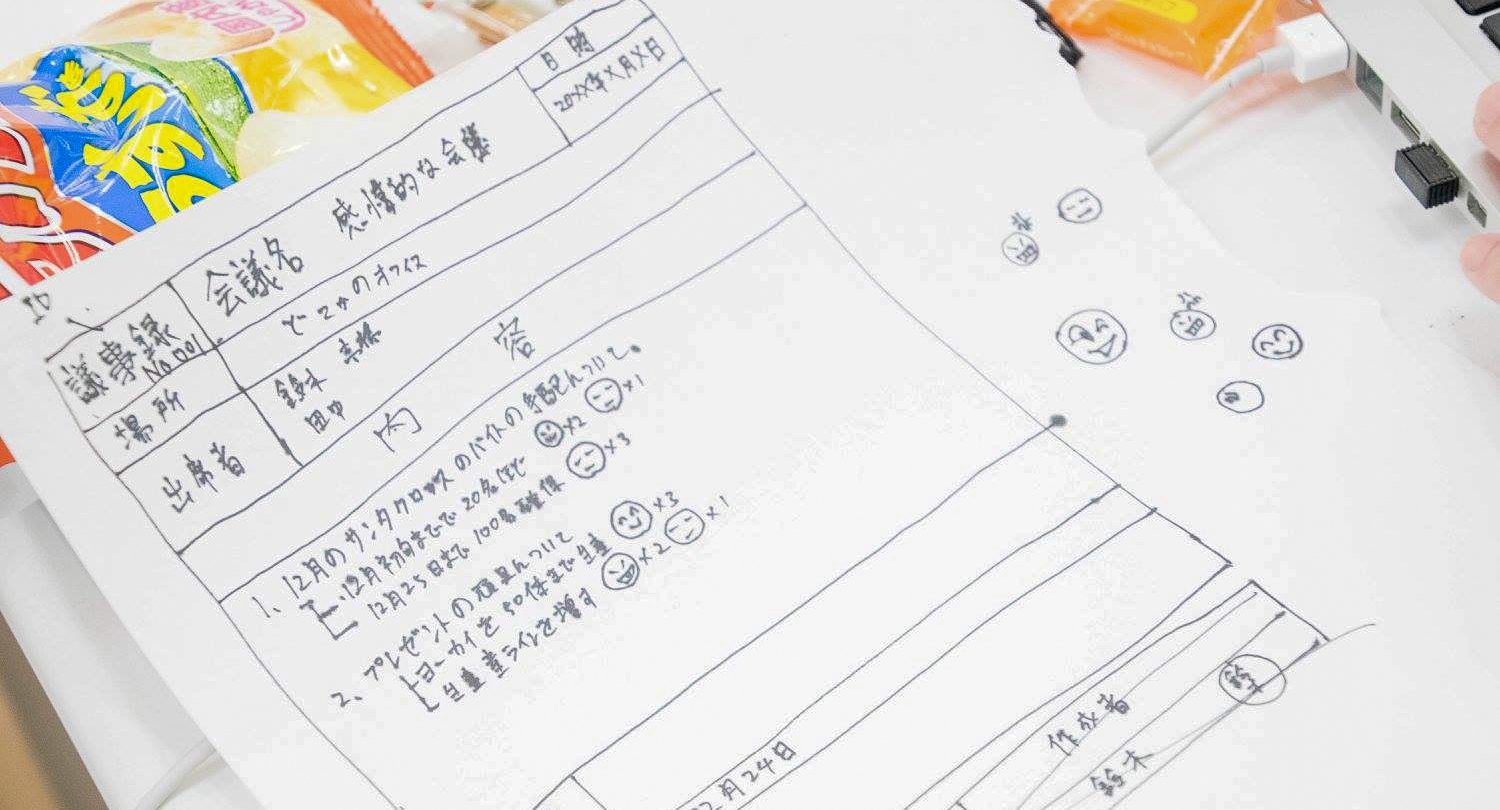 日時
20XX年X月X日
議事録
No.001
会議名 感情的な会議
場所
どこかのオフィス
出席者
鈴木 高橋
田中
内容
1、12月のサンタクロースのバイトの手配について。
12月初旬までで20名ほど ×2 ×1
12月25日まで100名確保 ×3
2、プレゼントの玩具について
ヨーカイを50体まで生産 ×3
生産ラインを増す ×2 ×1
月24日
作成者
鈴木